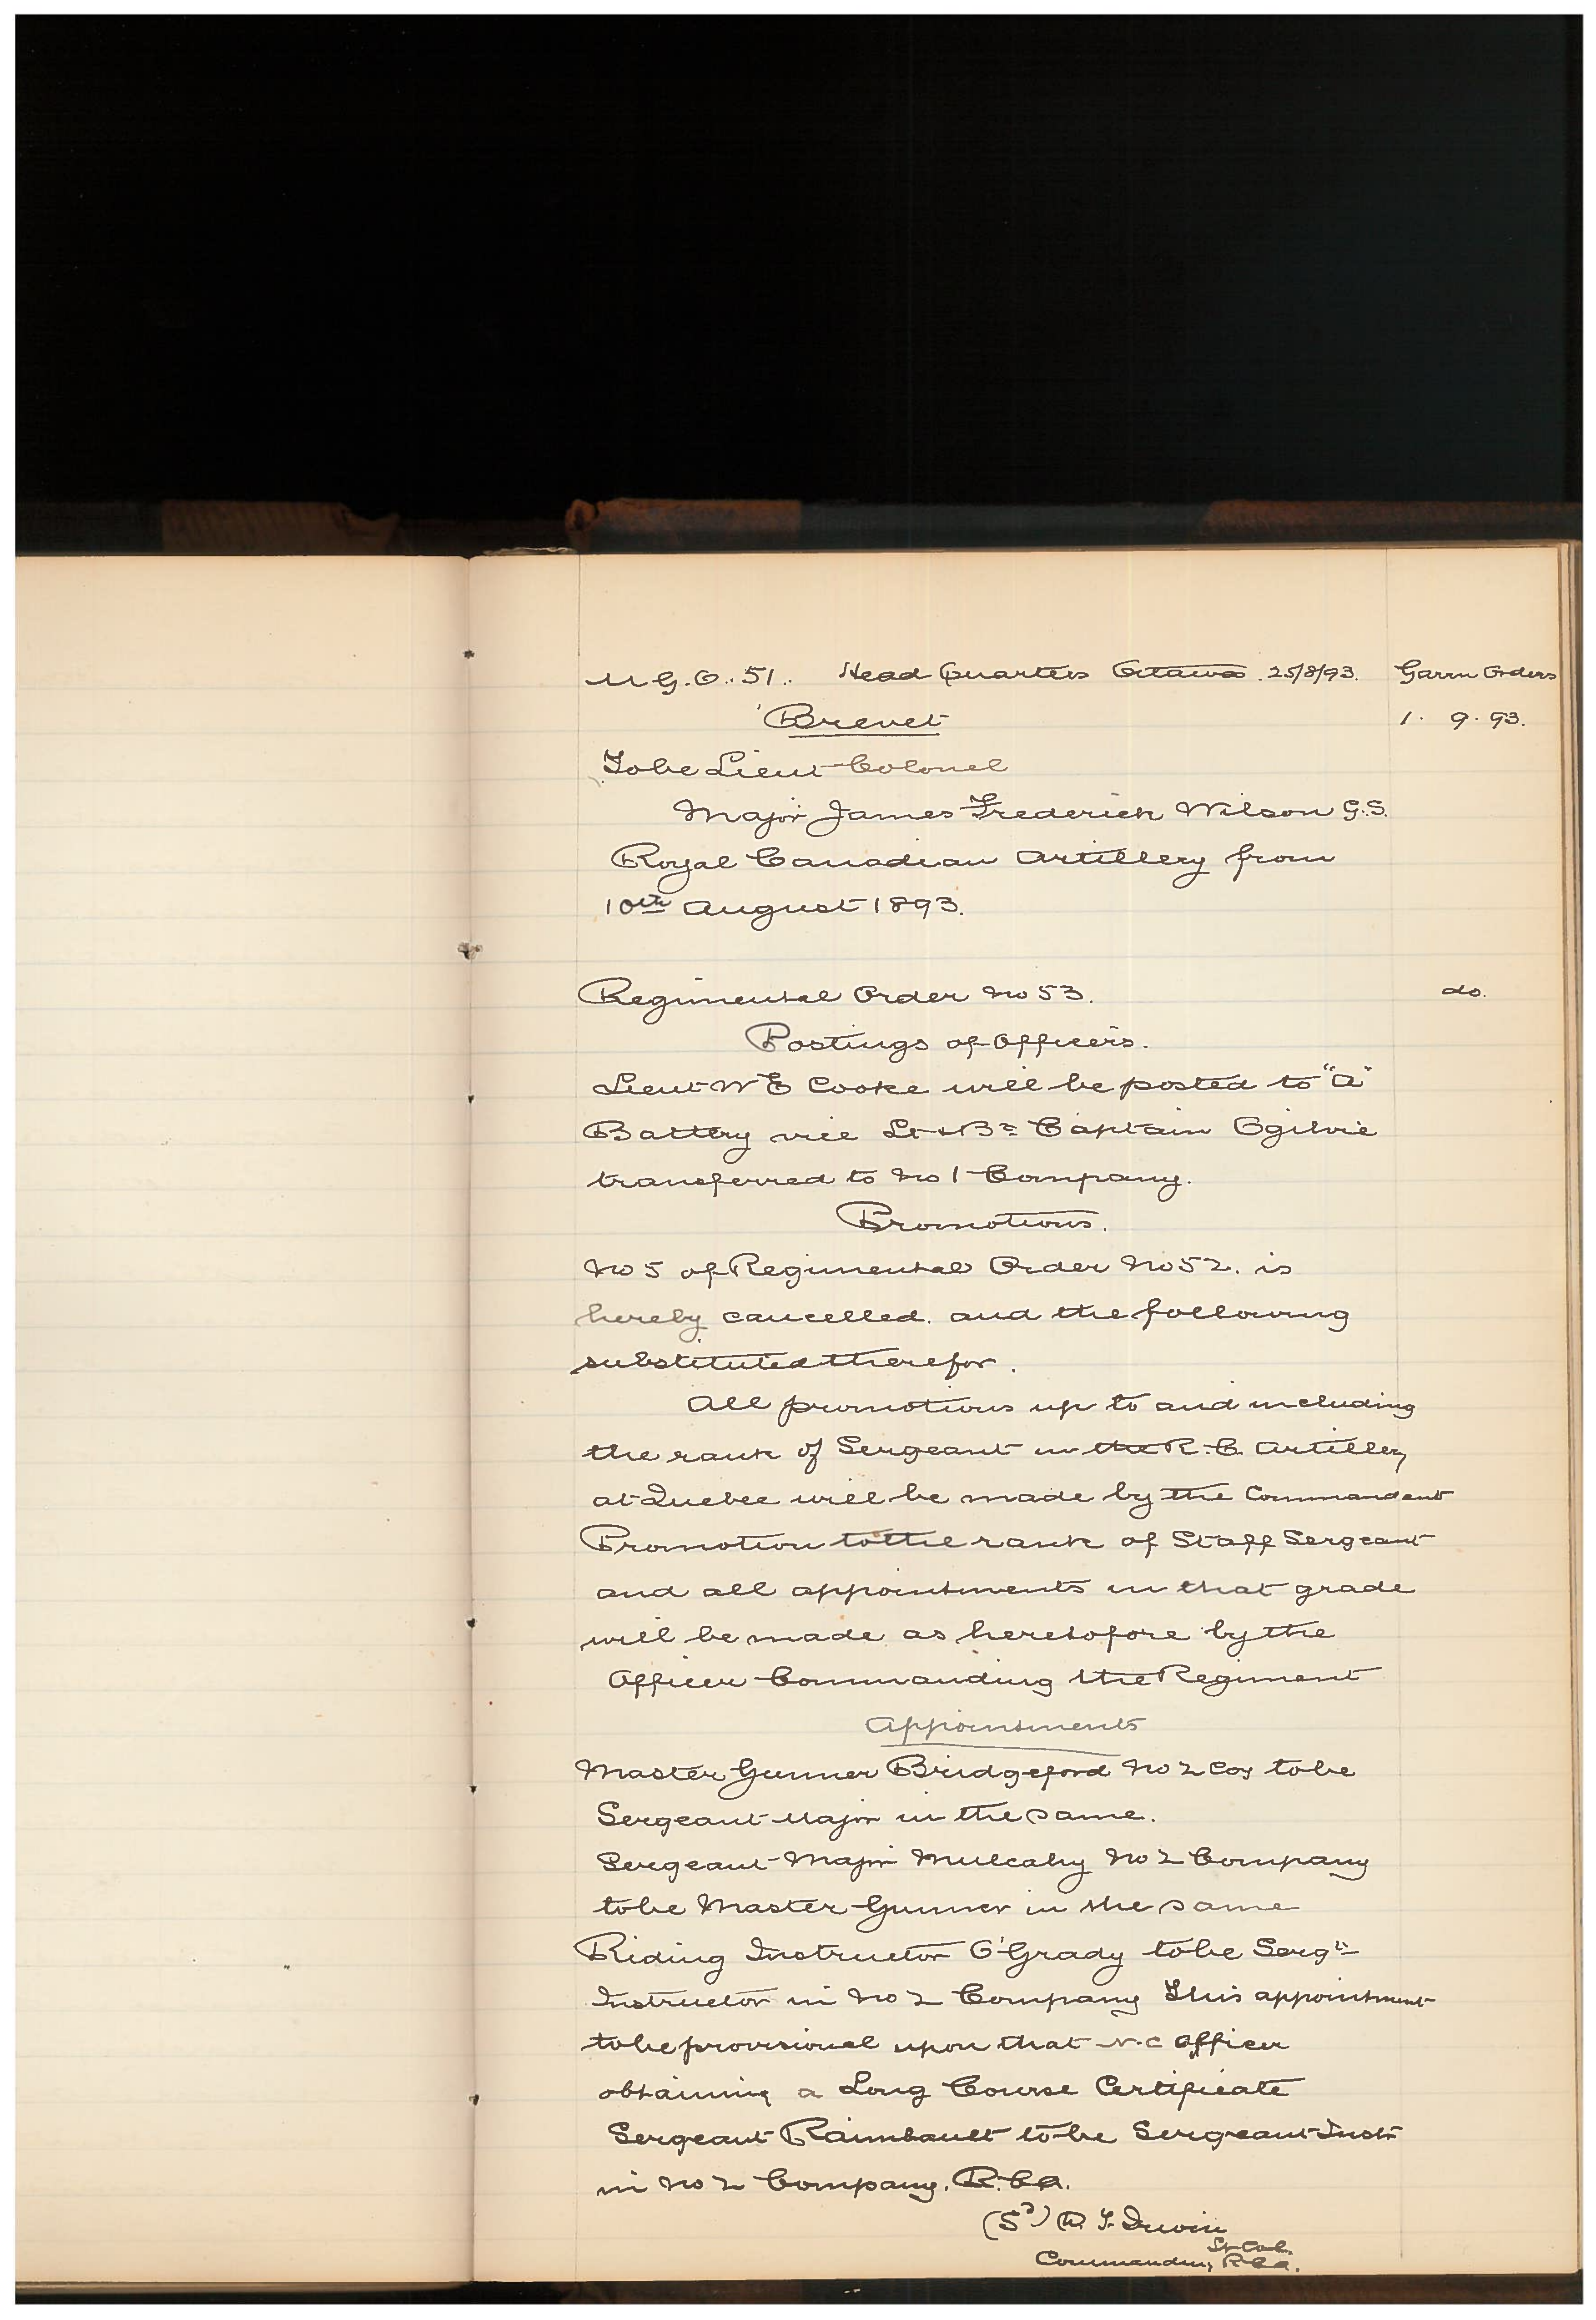 M G. O. 51. Head Quarters Ottawa 25/8/93. Garrn Orders
Brevet 1. 9. 93.
To be Lieut-Colonel
Major James Frederick Wilson G.S.
Royal Canadian Artillery from
10th August 1893.
Regimental Order No 53. do.
Postings of Officers.
Lieut W E Cooke will be posted to "A"
Battery vice Lt & Bt Captain Ogilvie
transferred to No 1 Company.
Promotions.
No 5 of Regimental Order No 52. is
hereby cancelled. and the following
substituted therefor.
All promotions up to and including
the rank of Sergeant in the R. C. Artillery
at Quebec will be made by the Commandant
Promotion to the rank of Staff Sergeant
and all appointments in that grade
will be made as heretofore by the
Officer Commanding the Regiment
Appointments
Master Gunner Bridgeford No 2 Coy to be
Sergeant Major in the same.
Sergeant-Major Mulcahy No 2 Company
to be Master Gunner in the same
Riding Instructor O'Grady to be Sergt
Instructor in No 2 Company This appointment
to be provisional upon that N. C Officer
obtaining a Long Course Certificate
Sergeant Raimbault to be Sergeant-Instr
in No 2 Company. R. C A.
(Sd) D. T. Irwin
Lt Col.
Commanding R C A.